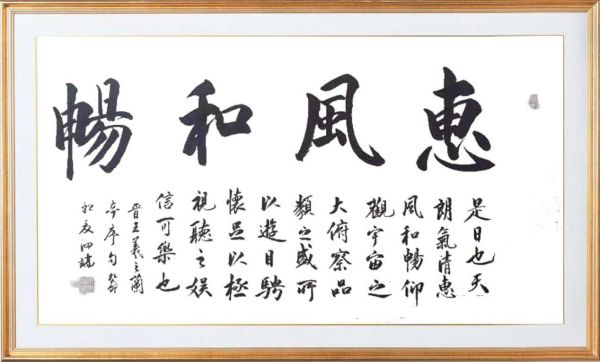 惠風和暢
是日也天
朗氣清惠
風和暢仰
觀宇宙之
大俯察品
類之盛所
以遊目騁
懷足以極
視聽之娱
信可樂也
晋王羲之蘭
亭序句
初夏